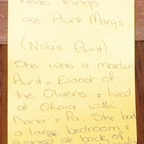 These things
are Aunt Mary's
(Nola's Aunt)
She was a maiden
Aunt - Eldest of
the Olivers & lived
at Okoia with
Nana & Pa. She had
a large bedroom &
at back of